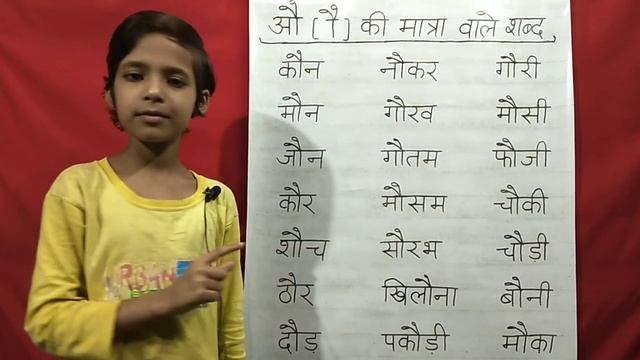 औ [ ौ ] की मात्रा वाले शब्द
कौन नौकर गौरी
मौन गौरव मौसी
जौन गौतम फौजी
कौर मौसम चौकी
शौच सौरभ चौड़ी
ठौर खिलौना बौनी
दौड़ पकौड़ी मौका
URBAN